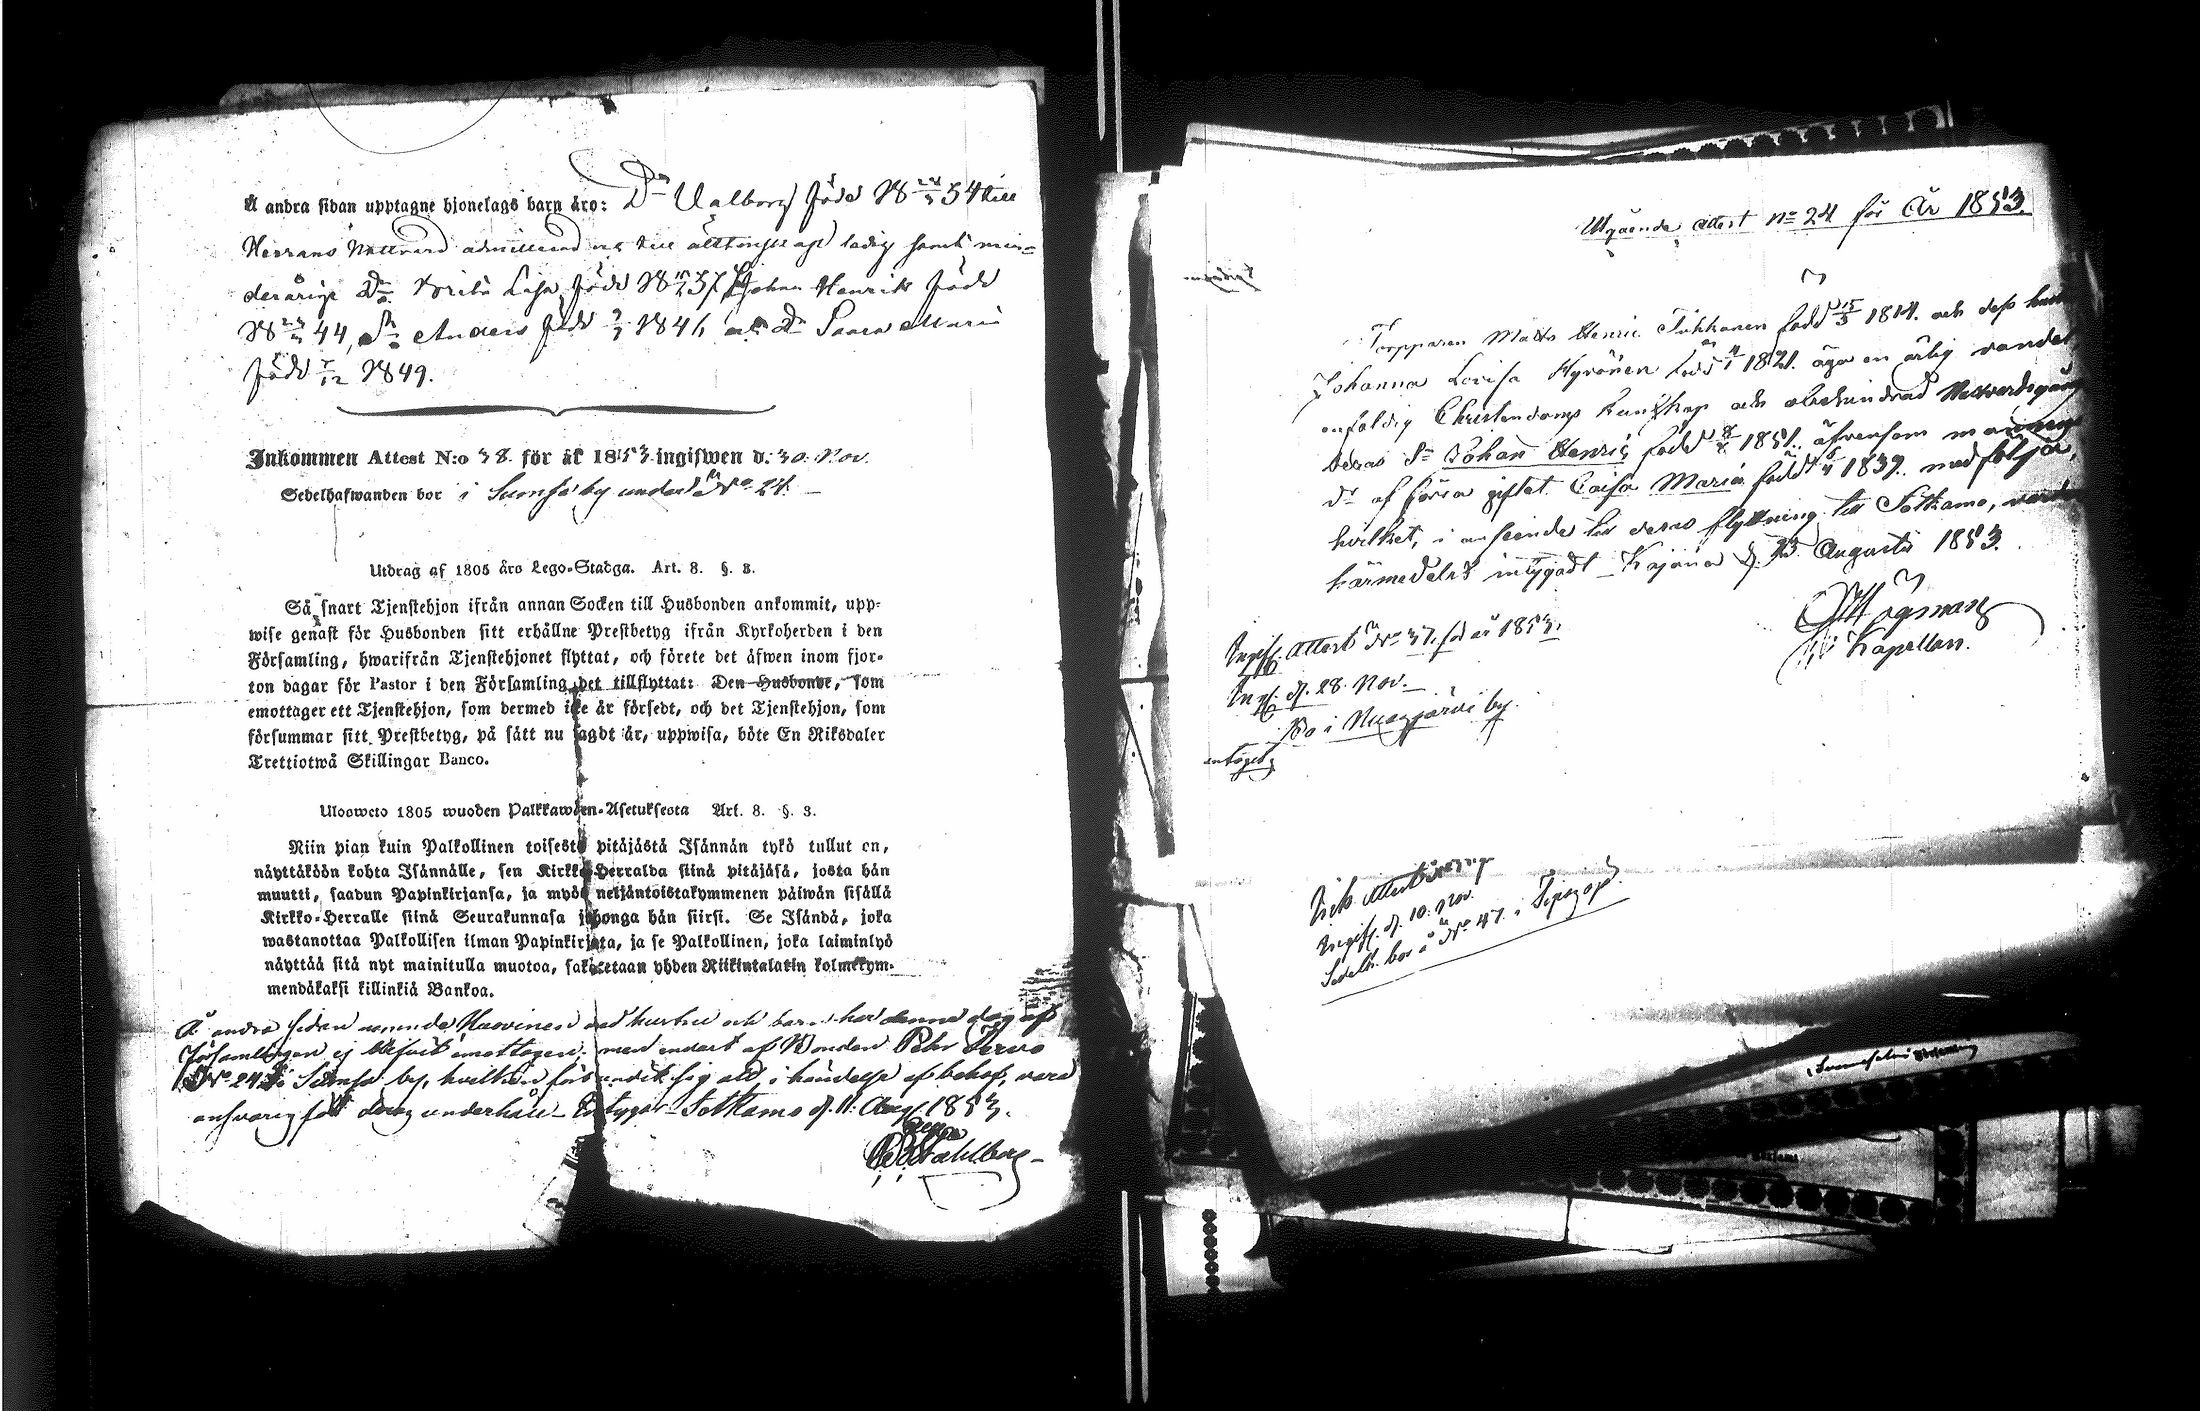 Å andra sidan upptagne hjonelags barn äro: Dr Valborg född 18 24/3 34 till
Herrans Nattvard admitterad och till allt ledig samt min-
derårige Dr Brita Lisa född 18 37, Sn Johan Henrik född
18 44, Sn Anders född 1846 och Dr Saara Maria
född 7/12 1849.
Inkommen Attest N:o 38 för år 1853 ingifwen d. 30. Nov.
Sedelhafwanden bor i Sumsa by under No 24.
Utdrag af 1805 års Lego-Stadga. Art. 8. §. 3.
Så snart Tjenstehjon ifrån annan Socken till Husbonden ankommit, upp-
wise genast för Husbonden sitt erhållne Prestbetyg ifrån Kyrkoherden i den
Församling, hwarifrån Tjenstehjonet flyttat, och förete det äfwen inom fjor-
ton dagar för Pastor i den Församling det tillflyttat: Den Husbonde, som
emottager ett Tjenstehjon, som dermed icke är försedt, och det Tjenstehjon, som
försummar sitt Prestbetyg, på sätt nu sagdt är, uppwisa, böte En Riksdaler
Trettiotwå Skillingar Banco.
Ulosweto 1805 wuoden Palkkawäen-Asetuksesta Art. 8. §. 3.
Niin pian kuin Palkollinen toisesta pitäjästä Isännän tykö tullut on,
näyttäköön kohta Isännälle, sen Kirkko-Herralda siinä pitäjäsä, josta hän
muutti, saadun Papinkirjansa, ja myös neljäntoistakymmenen päiwän sisällä
Kirkko-Herralle siinä Seurakunnasa johonga hän siirsi. Se Isändä, joka
wastanottaa Palkollisen ilman Papinkirjata, ja se Palkollinen, joka laiminlyö
näyttää sitä nyt mainitulla muotoa, sakoitetaan yhden Riikintalarin kolmekym-
mendäkaksi killinkiä Bankoa.
Å andra sidan nämnda Huovinen med hustru och barn har denna dag af
Församlingen ej blifvit emottagen, men endast af Bonden Petter Tervo
No 24 i Sumsa by, hvilken förbundit sig att, i händelse af behof, vara
ansvarig för deras underhåll. Intygar Sotkamo d. 11. Aug. 1853.
Stahlberg
Utgående Attest No 24 för År 1853.
Torpparen Matts Henric Tikkanen född 15/3 1814. och dess hustru
Johanna Lovisa Hyvönen född 1821. äga en ärlig vandel,
enfaldig Christendoms kunskap och obehindrad Nattvardsgång
deras Sn Johan Henric född 8 1851. äfvensom mannens
dr af förra giftet Caisa Maria född 1839. medfölja,
hvilket, i anseende till deras flyttning till Sotkamo, varder
härmedelst intygadt. Kajana d. 23 Augusti 1853.
Högman
Kapellan.
Ingif. Attest No 37. för år 1853.
Ing. d. 28. Nov.
Bo i Nuasjärvi by.
antagit
Ingif. d. 10. Nov.
Sedelh. bor å No 47. i